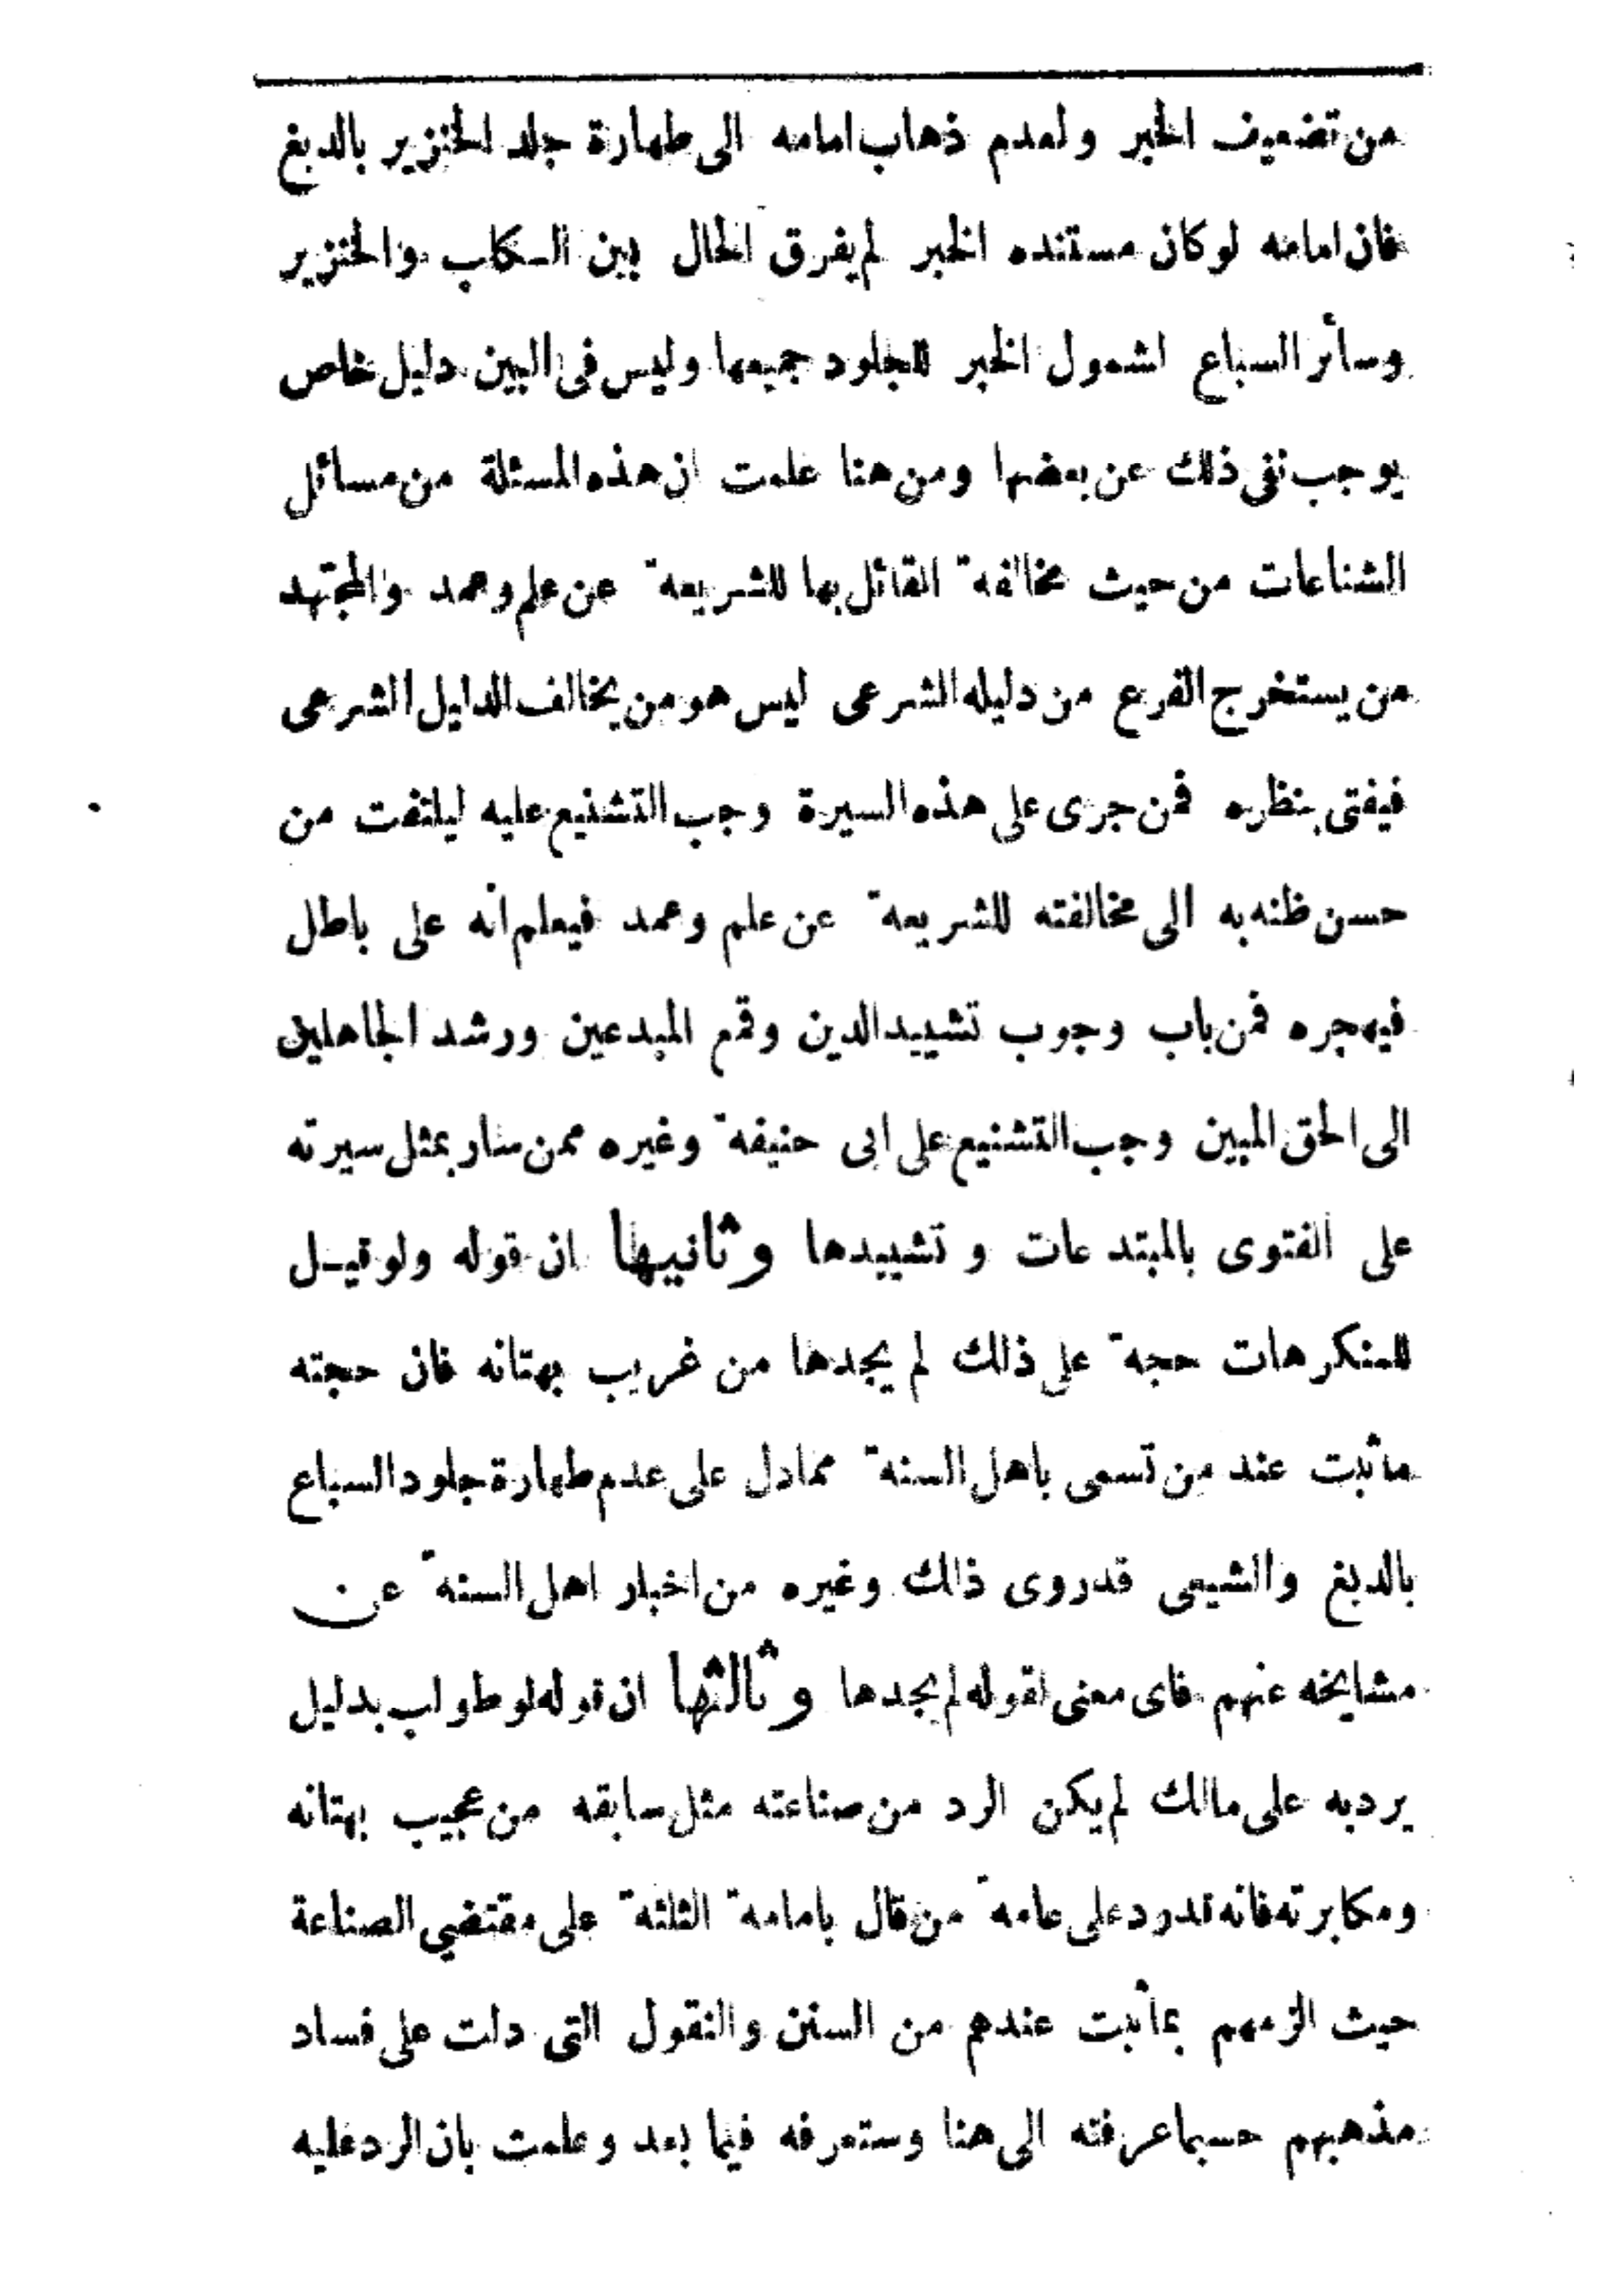 من تضعيف الخبر ولعدم ذهاب امامه الى طهارة جلد الخنزير بالدبغ
فان امامه لو كان مستنده الخبر لم يفرق الحال بين الكلب والخنزير
وسائر السباع لشمول الخبر للجلود جميعها وليس فى البين دليل خاص
يوجب نفى ذلك عن بعضها ومن هنا علمت ان هذه المسئلة من مسائل
الشناعات من حيث مخالفة القائل بها للشريعة عن علم وعمد والمجتهد
من يستخرج الفرع من دليله الشرعى ليس هو من يخالف الدليل الشرعى
فيفتى بنظره فمن جرى على هذه السيرة وجب التشنيع عليه ليلتفت من
حسن ظنه به الى مخالفته للشريعة عن علم وعمد فيعلم انه على باطل
فيهجره فمن باب وجوب تشييد الدين وقمع المبدعين ورشد الجاهلين
الى الحق المبين وجب التشنيع على ابى حنيفة وغيره ممن سار بمثل سيرته
على الفتوى بالمبتدعات و تشييدها وثانيها ان قوله ولو قيل
للمنكر هات حجة على ذلك لم يجدها من غريب بهتانه فان حجته
ما ثبت عند من تسمى باهل السنة ممادل على عدم طهارة جلود السباع
بالدبغ والشيعى قد روى ذلك وغيره من اخبار اهل السنة عن
مشايخه عنهم فاى معنى لقوله لم يجدها وثالثها ان قوله لو طولب بدليل
يرد به على مالك لم يكن الرد من صناعته مثل سابقه من عجيب بهتانه
ومكابرته فانه قد رد على عامة من قال بامامة الثلثة على مقتضي الصناعة
حيث الزمهم بماثبت عندهم من السنن والنقول التى دلت على فساد
مذهبهم حسبما عرفته الى هنا وستعرفه فيما بعد وعلمت بان الرد عليه